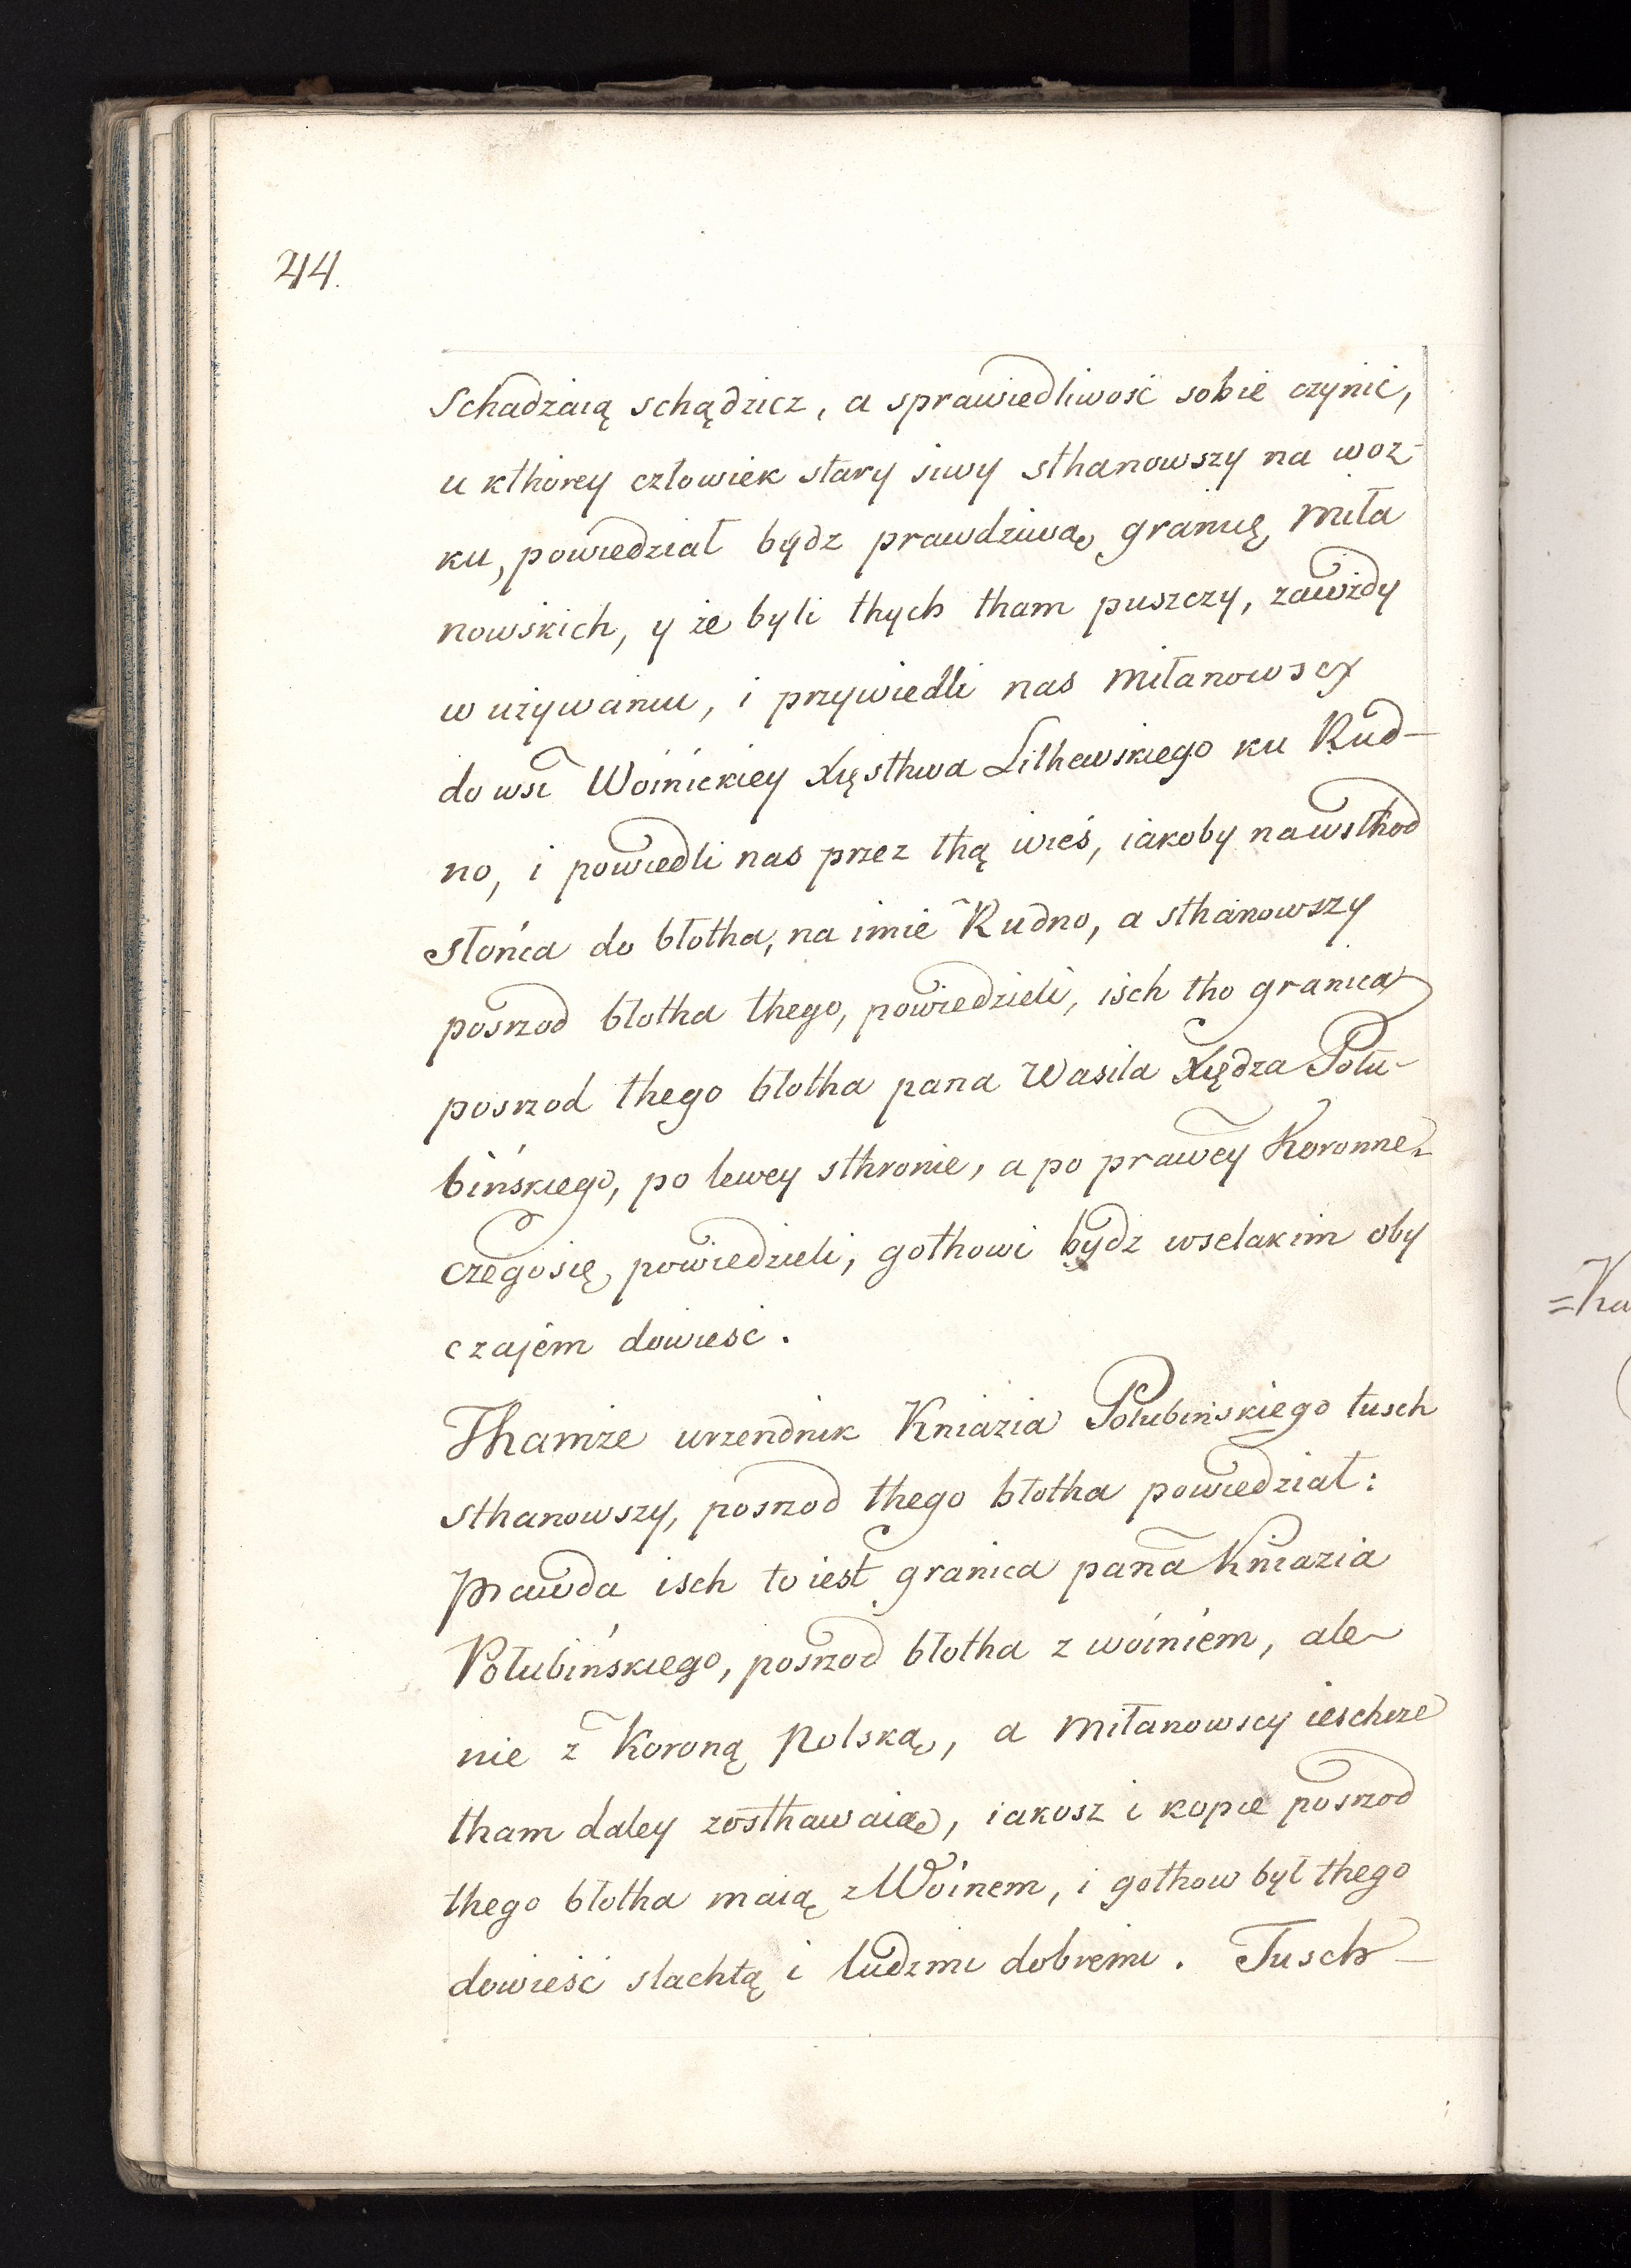 244.
Schadzaią schądzicz, a sprawiedliwość sobie czynić,
u kthorey człowiek stary siwy sthanowszy na woz-
ku, powiedział bydz prawdziwą granię Miła
nowskich, y że byli thych tham puszczy, zawżdy
w używaniu, i przywiedli nas Miłanowscy
do wsi Woinickiey Xięsthwa Lithewskiego ku Rud-
no, i powiedli nas przez thą wieś, iakoby na wsthod
słońca do błotha, na imie Rudno, a sthanowszy
posrzod błotha thego, powiedzieli, isch tho granica
posrzod thego błotha pana Wasila Xiędza Połu-
bińskiego, po lewey sthronie, a po prawey Koronne-
czego się, powiedzieli, gothowi bydz wselakim oby
czajem dowiesc.
Thamże urzendnik Kniazia Połubińskiego tusch
sthanowszy, posrzod thego błotha powiedział:
prawda isch to iest granica pana Kniazia
Połubińskiego, posrzod błotha z wóiniem, ale
nie z Koroną Polską, a Miłanowscy ieschcze
tham daley zosthawaią, iakosz i kopce posrzod
thego błotha maią z Wóinem, i gothow był thego
dowieść slachtą i ludzmi dobremi. Tusch
=Ka